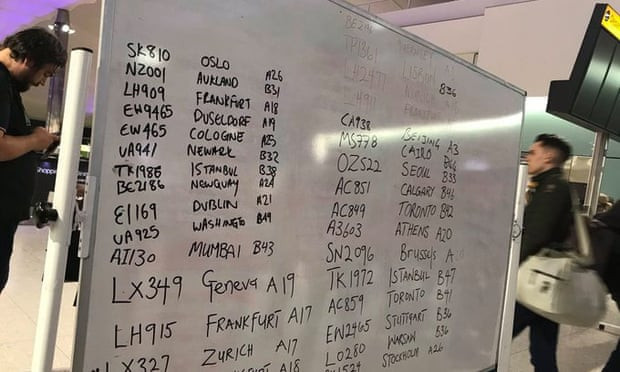 SK810 OSLO A26
NZ001 AUKLAND B31
LH909 FRANKFURT A18
EW9465 DUSELDORF A19
EW465 COLOGNE A25
UA941 NEWARK B32
TK1986 ISTANBUL B38
BE2186 NEWQUAY A24
EI169 DUBLIN A21
UA925 WASHINGTO B49
AI130 MUMBAI B43
LX349 Geneva A19
LH915 FRANKFURT A17
LX327 ZURICH A17
A18
TP1361 LISBON
LH2477 B36
CA938 BEIJING A3
MS778 CAIRO
OZ522 SEOUL B33
AC851 CALGARY B46
AC849 TORONTO B42
A3603 ATHENS A20
SN2096 Brussels A
TK1972 ISTANBUL B47
AC859 TORONTO B41
EW2465 STUTTGART B36
LO280 WARSAW B36
STOCKHOLM A26